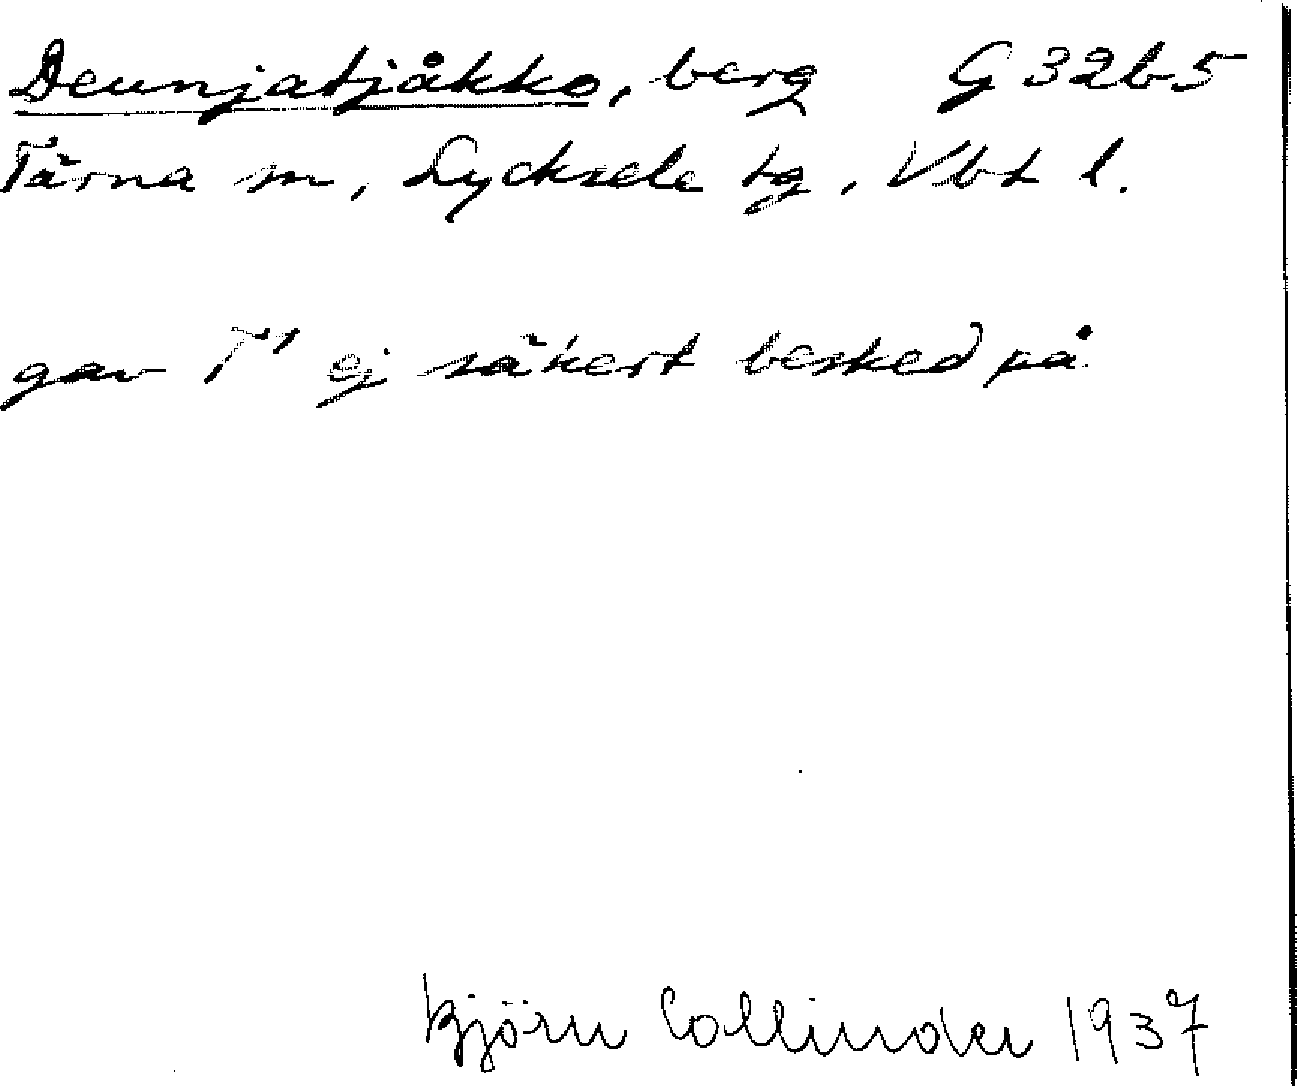 Deunjatjåkko, berg G32b5
Tärna sn, Lycksele tg, Vbt l.
gav T' ej säkert besked på.
Björn Collinder 1937